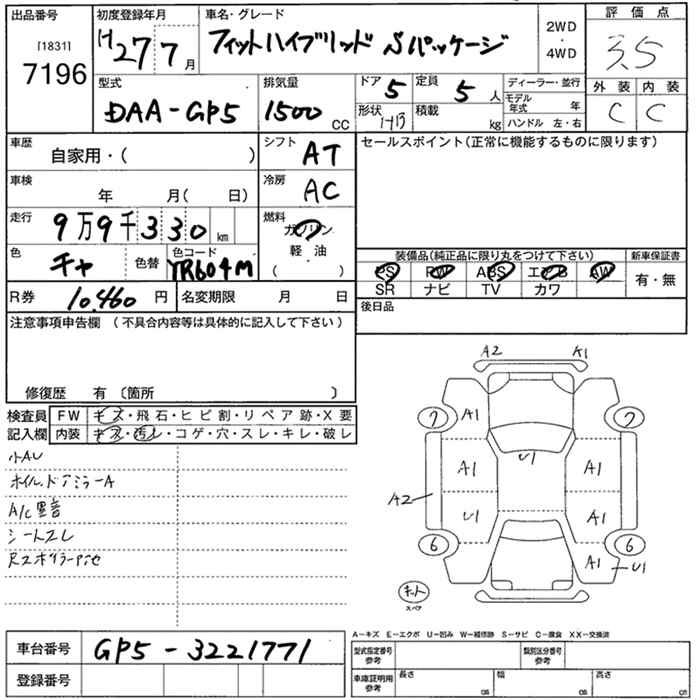 出品番号
[1831]
7196
初度登録年月
H27 7月
車名・グレード
フィットハイブリッド Sパッケージ
2WD
・
4WD
評価点
3.5
外装 内装
C C
型式
DAA-GP5
排気量
1500 CC
ドア 5
形状 HB
定員 5 人
積載 kg
ディーラー・並行
モデル年式 年
ハンドル 左・右
車歴
自家用・( )
シフト
AT
車検
年 月( 日)
冷房
AC
走行
9万9千330 km
燃料
ガソリン
軽・油
( )
色
チャ
色替
色コード
YR604M
R券 10,460 円
名変期限 月 日
セールスポイント(正常に機能するものに限ります)
装備品(純正品に限り丸をつけて下さい)
PS PW ABS エアB AW
SR ナビ TV カワ
新車保証書
有・無
後日品
注意事項申告欄 (不具合内容等は具体的に記入して下さい)
修復歴 有 〔箇所 〕
検査員記入欄
FW キズ・飛石・ヒビ割・リペア跡・X要
内装 キズ・汚レ・コゲ・穴・スレ・キレ・破レ
小AU
ホイル、ドアミラーA
A/C異音
シートスレ
A2 A1
7 A1 7
A1 U1 A1
A2 U1 A1
6 6
A1 U1
キット
スペア
車台番号 GP5-3221771
登録番号
A-キズ E-エクボ U-凹み W-補修跡 S-サビ C-腐食 XX-交換済
型式指定番号 参考
類別区分番号 参考
車庫証明用 参考
長さ cm 幅 cm 高さ cm